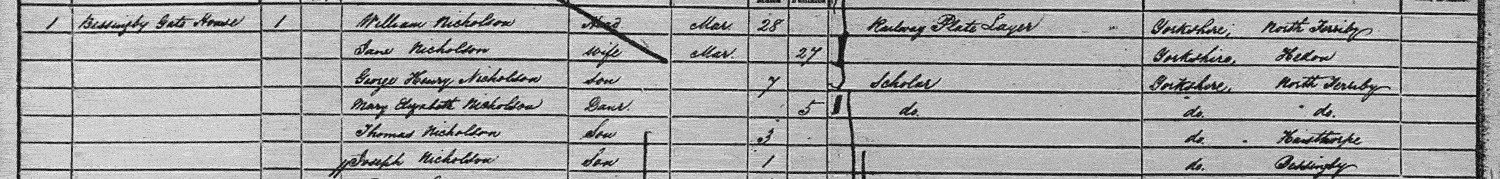 1 Bessingby Gate House 1 William Nicholson Head Mar. 28 Railway Plate Layer Yorkshire, North Ferriby
Jane Nicholson Wife Mar. 27 Yorkshire, Hedon
George Henry Nicholson Son 7 Scholar Yorkshire, North Ferriby
Mary Elizabeth Nicholson Daur. 5 do. do. " do.
Thomas Nicholson Son 3 do. Haisthorpe
Joseph Nicholson Son 1 do. Bessingby